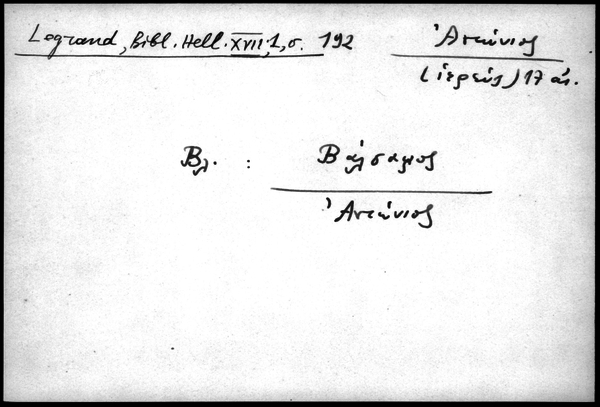 Legrand, Bibl. Hell. XVII, 1, σ. 192
Ἀντώνιος
(ἱερεύς) 17 αἰ.
Βλ. : Βάλσαμος
Ἀντώνιος